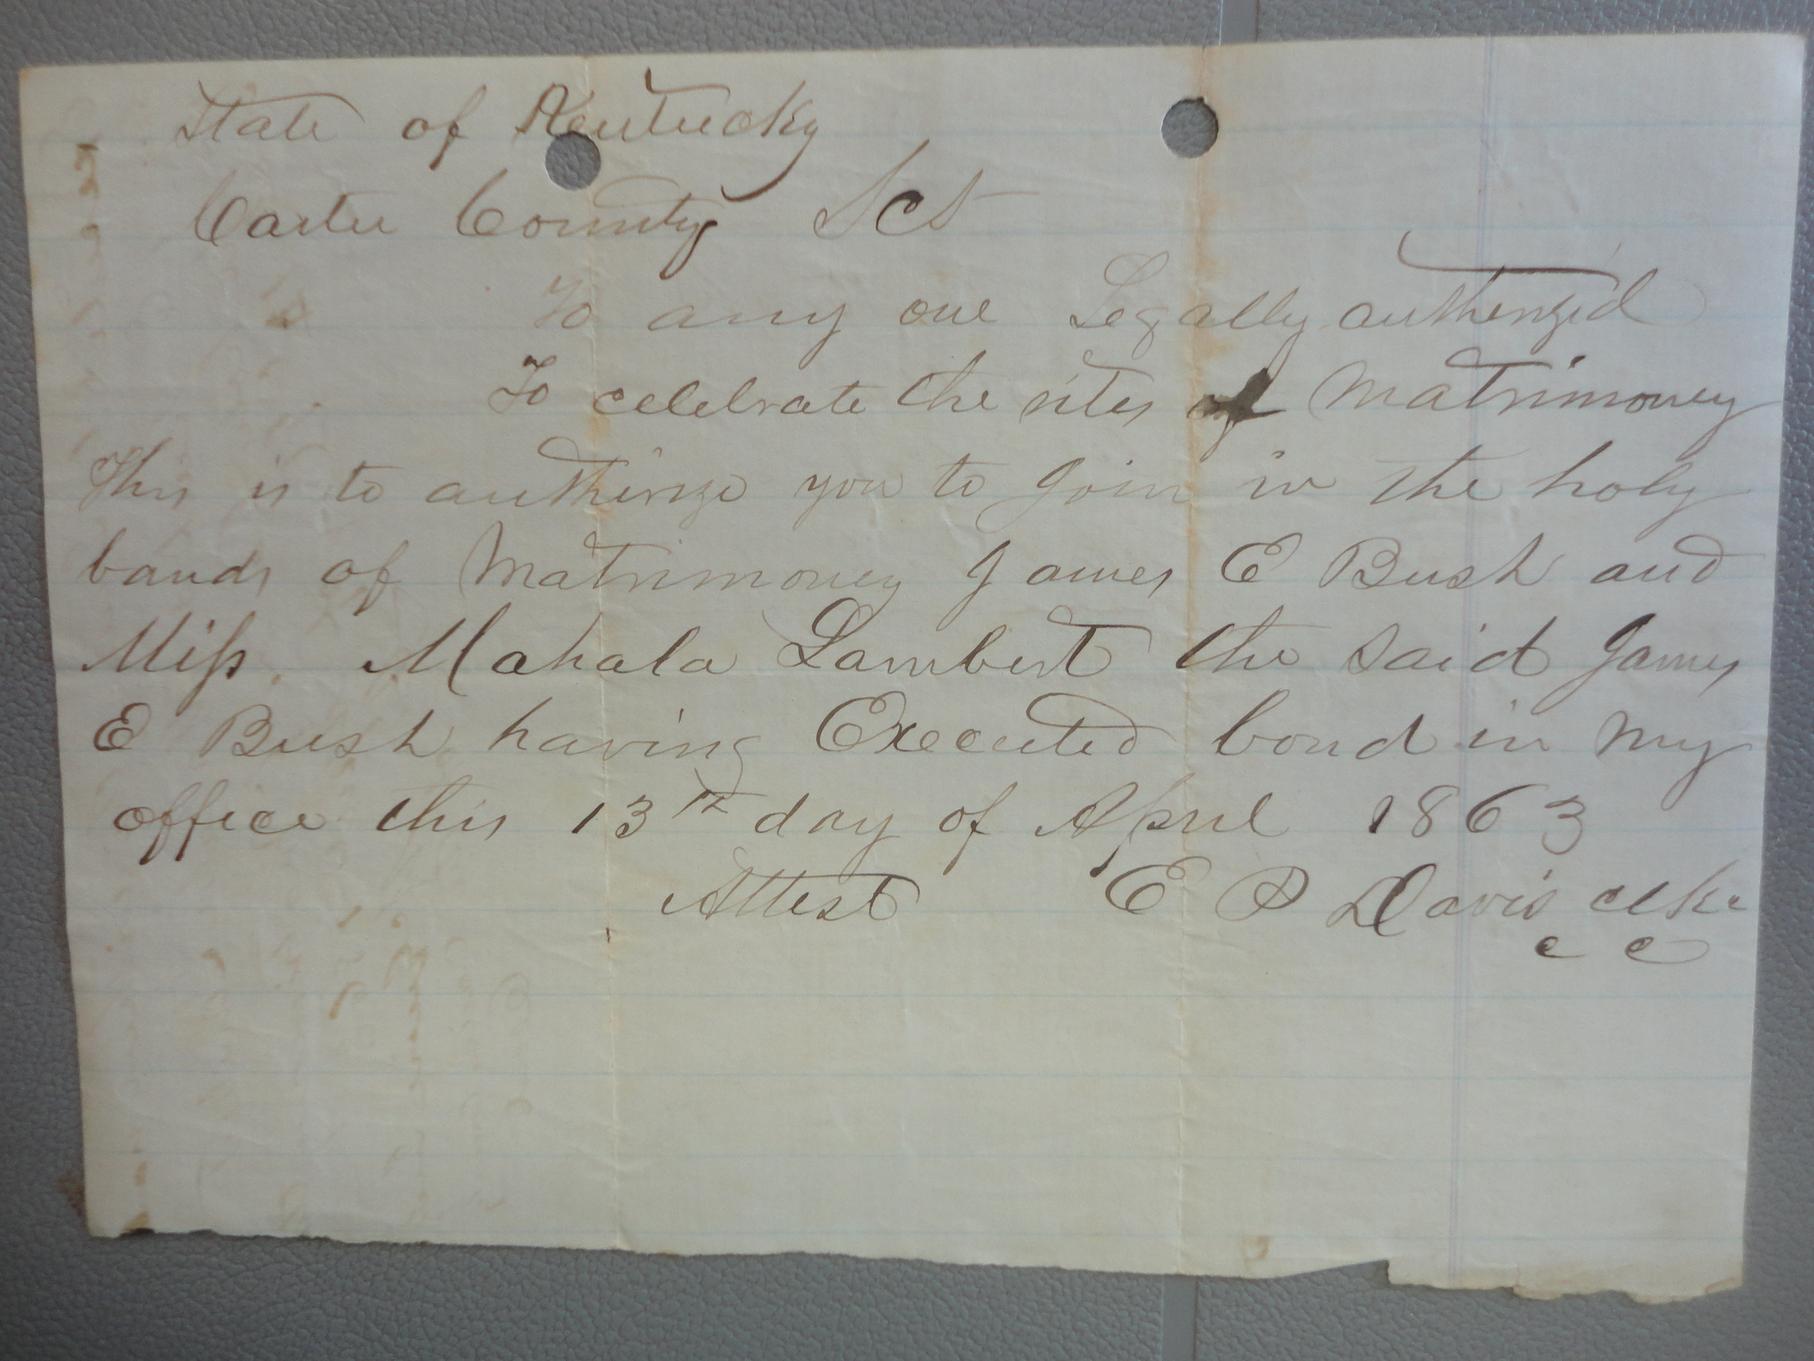 State of Kentucky
Carter County Sct
To any one Legally autherized
To celebrate the rites of Matrimoney
This is to autherize you to Join in the holy
bands of Matrimoney James E Bush and
Miss. Mahala Lambert the said James
E Bush having Executed bond in my
office this 13th day of April 1863
Attest E P Davis clk.
c c